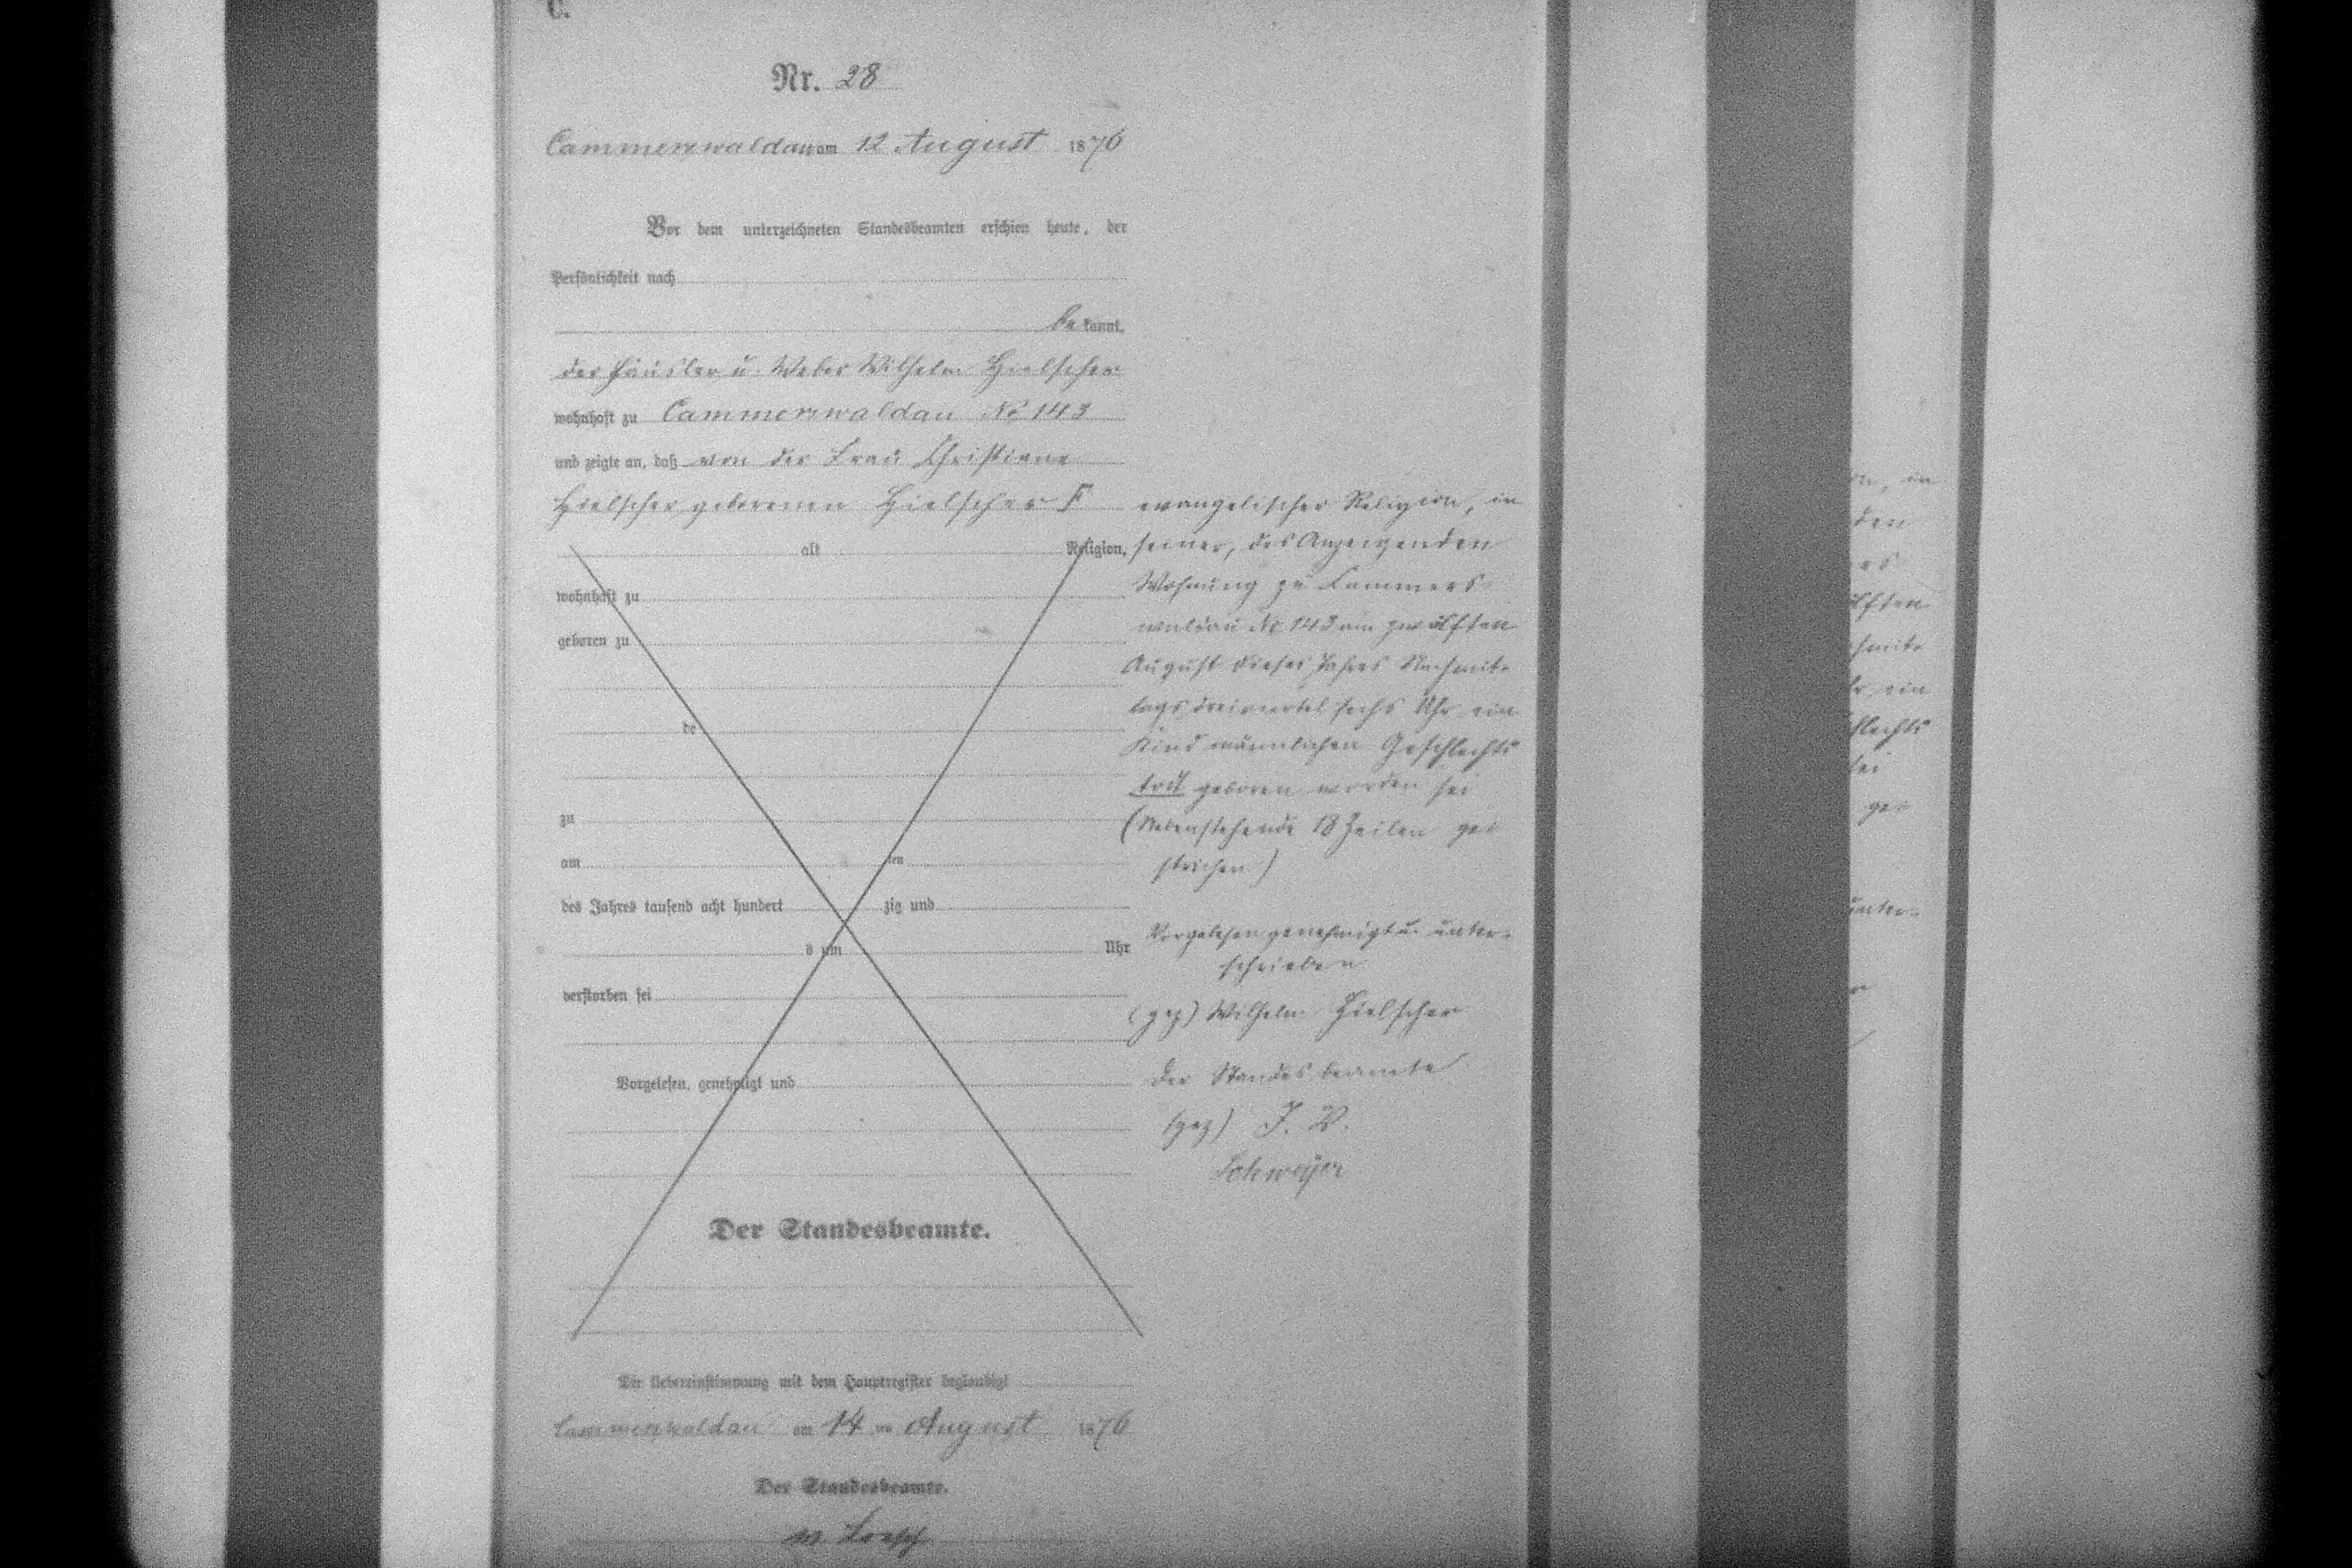 C.
Nr. 28
Cammerswaldau am 12 August 1876
Vor dem unterzeichneten Standesbeamten erschien heute, der
Persönlichkeit nach
bekannt,
der Häusler u. Weber Wilhelm Hielscher
wohnhaft zu Cammerswaldau No 143
und zeigte an, daß von der Frau Christiane
Hielscher geborenen Hielscher
alt Religion,
wohnhaft zu
geboren zu
de
zu
am ten
des Jahres tausend acht hundert zig und
s um Uhr
verstorben sei
Vorgelesen, genehmigt und
Der Standesbeamte.
evangelischer Religion, in
seiner, des Anzeigenden
Wohnung zu Cammers
waldau No 143 am zwölften
August dieses Jahres Nachmit-
tags dreiviertel sechs Uhr ein
Kind männlichen Geschlechts
todt geboren worden sei
(Nebenstehende 18 Zeilen ge-
strichen)
Vorgelesen genehmigt u. unter-
schrieben
(gez) Wilhelm Hielscher
Der Standesbeamte
(gez) J. V.
Die Uebereinstimmung mit dem Hauptregister beglaubigt
Cammerswaldau am 14 ten August 1876
Der Standesbeamte.
on, in
den
ers
ölften
chmit-
hr ein
hlechts
sei
ge-
unter-